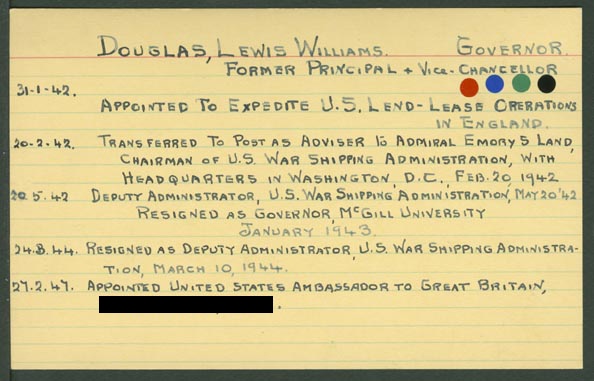 DOUGLAS, LEWIS WILLIAMS. GOVERNOR.
FORMER PRINCIPAL + VICE-CHANCELLOR
31-1-42.
APPOINTED TO EXPEDITE U.S. LEND-LEASE OPERATIONS
IN ENGLAND.
20-2-42. TRANSFERRED TO POST AS ADVISER TO ADMIRAL EMORY S LAND,
CHAIRMAN OF U.S. WAR SHIPPING ADMINISTRATION, WITH
HEADQUARTERS IN WASHINGTON, D.C., FEB. 20, 1942
20.5.42 DEPUTY ADMINISTRATOR, U.S. WAR SHIPPING ADMINISTRATION, MAY 20'42
RESIGNED AS GOVERNOR, MCGILL UNIVERSITY
JANUARY 1943.
24.3.44. RESIGNED AS DEPUTY ADMINISTRATOR, U.S. WAR SHIPPING ADMINISTRA-
TION, MARCH 10, 1944.
27.2.47. APPOINTED UNITED STATES AMBASSADOR TO GREAT BRITAIN,